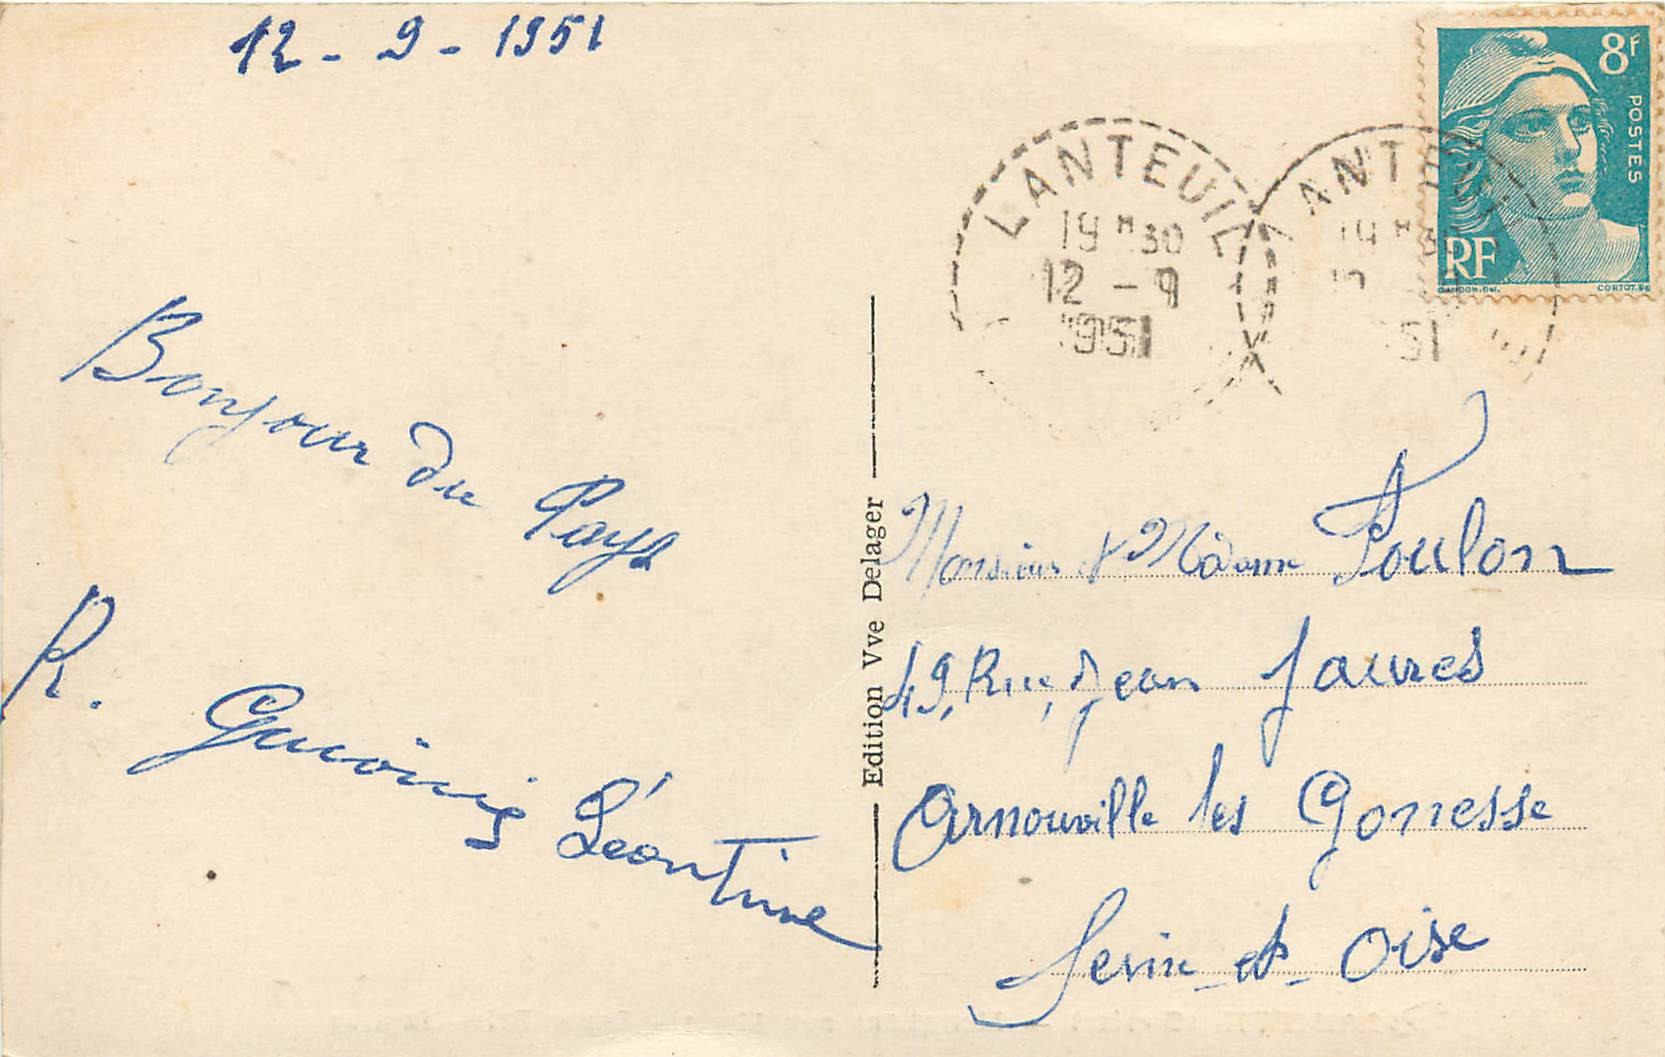 12 - 9 - 1951
Bonjour du Pays
R.
Léontine
Edition Vve Delager
LANTEUIL
19 H 30
12 - 9
1951
ANTEUI
19 H 30
51
8F
POSTES
RF
GANDON.Del.
CORTOT.Sc
Monsieur & Madame Poulon
49, Rue, Jean Jaures
Arnouville les Gonesse
Seine-et-Oise